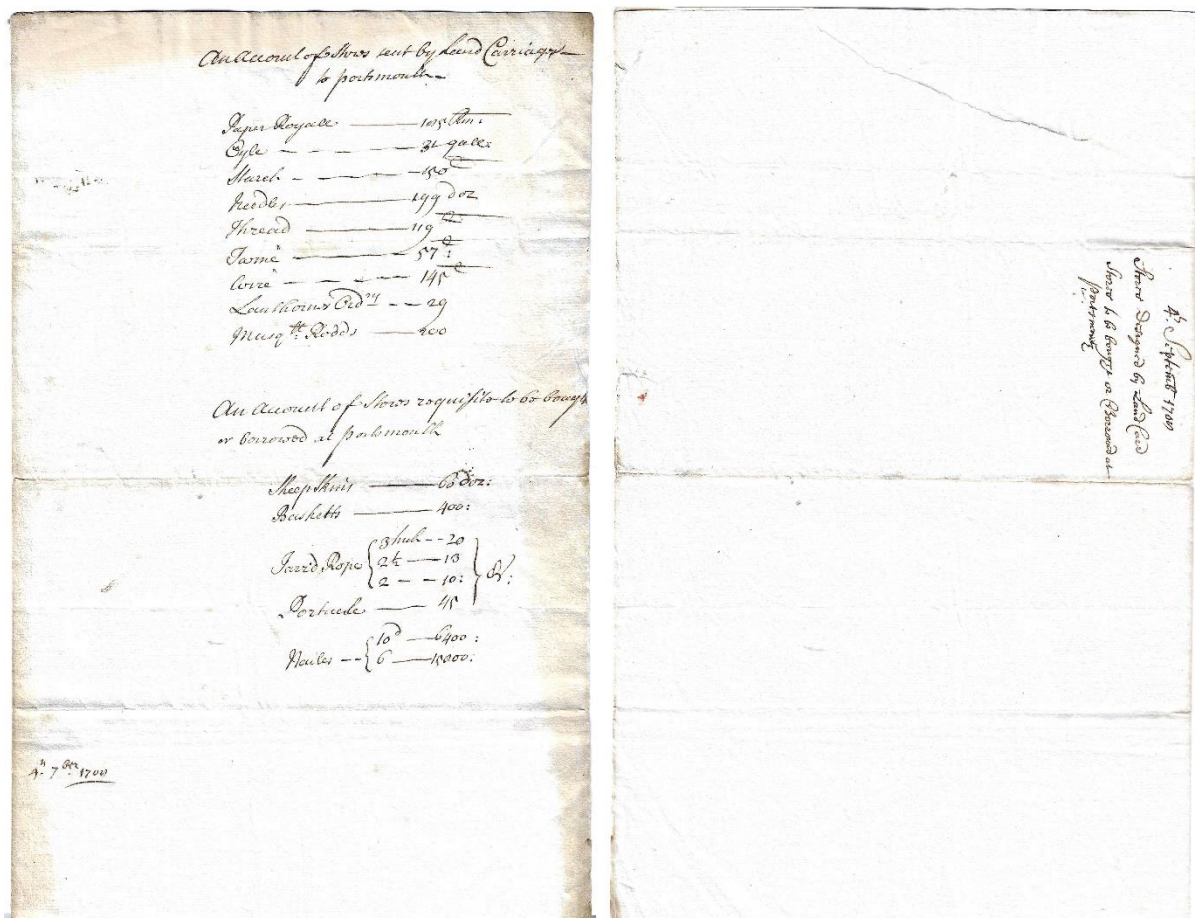 An Account of Stores sent by Land Carriage
to Portsmouth
Paper Royall 105 Rm:
Oyle 31 galls:
Starch 150
Needles 199 doz
Thread 119
Twine 57:
Wire 145
Lanthorns Ord.ry 29
Musqtt. Rodds 200
An Account of Stores requisite to be bought
or borrowed at Portsmouth
Sheep Skins 60 doz:
Basketts 400:
Tarr'd Rope 3 Inch 20
2½ 13
2 10:
45
Nailes 10d 6400:
6 15000:
4th. 7ber
4th. Septembr
Stores Designed by Land Card
Stores to be bought or Borrowed at
Portsmouth